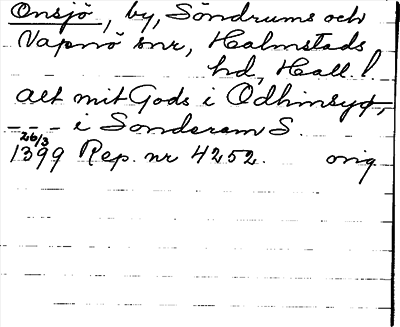 Onsjö, by, Söndrums och
Vapnö snr, Halmstads
hd, Hall. l.
alt mit Gods i Odhinsyø,
--- i Sonderam S.
26/3
1399 Rep. nr 4252. orig